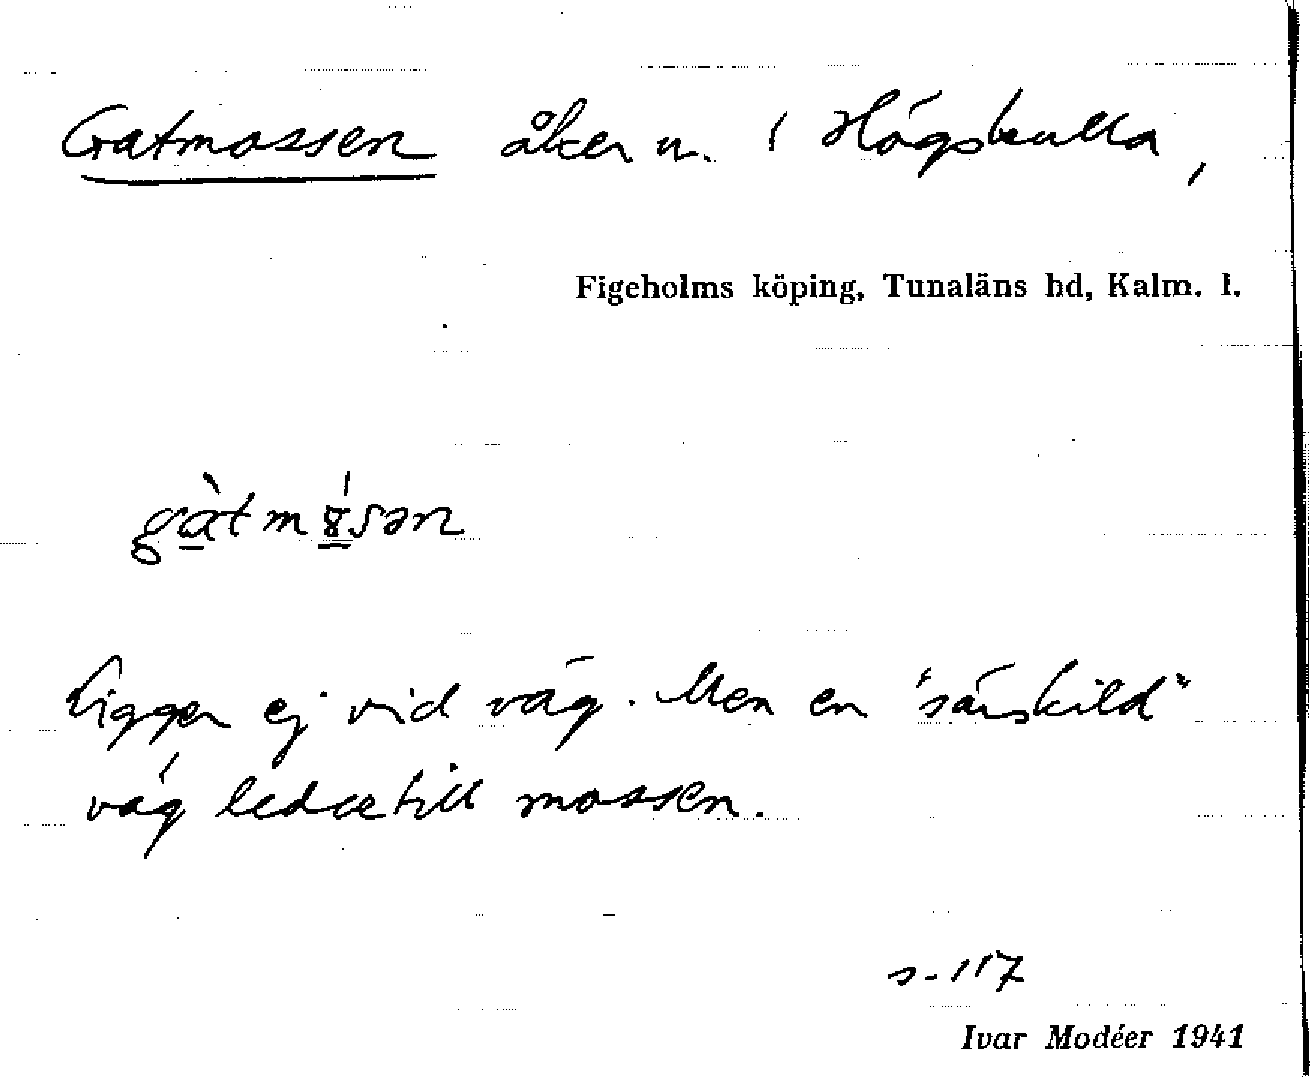 Gatmossen åker n. i Högskulla,
Figeholms köping, Tunaläns hd, Kalm. l.
gàtmósən
Ligger ej vid väg. Men en "särskild"
väg ledde till mossen.
s. 117
Ivar Modéer 1941